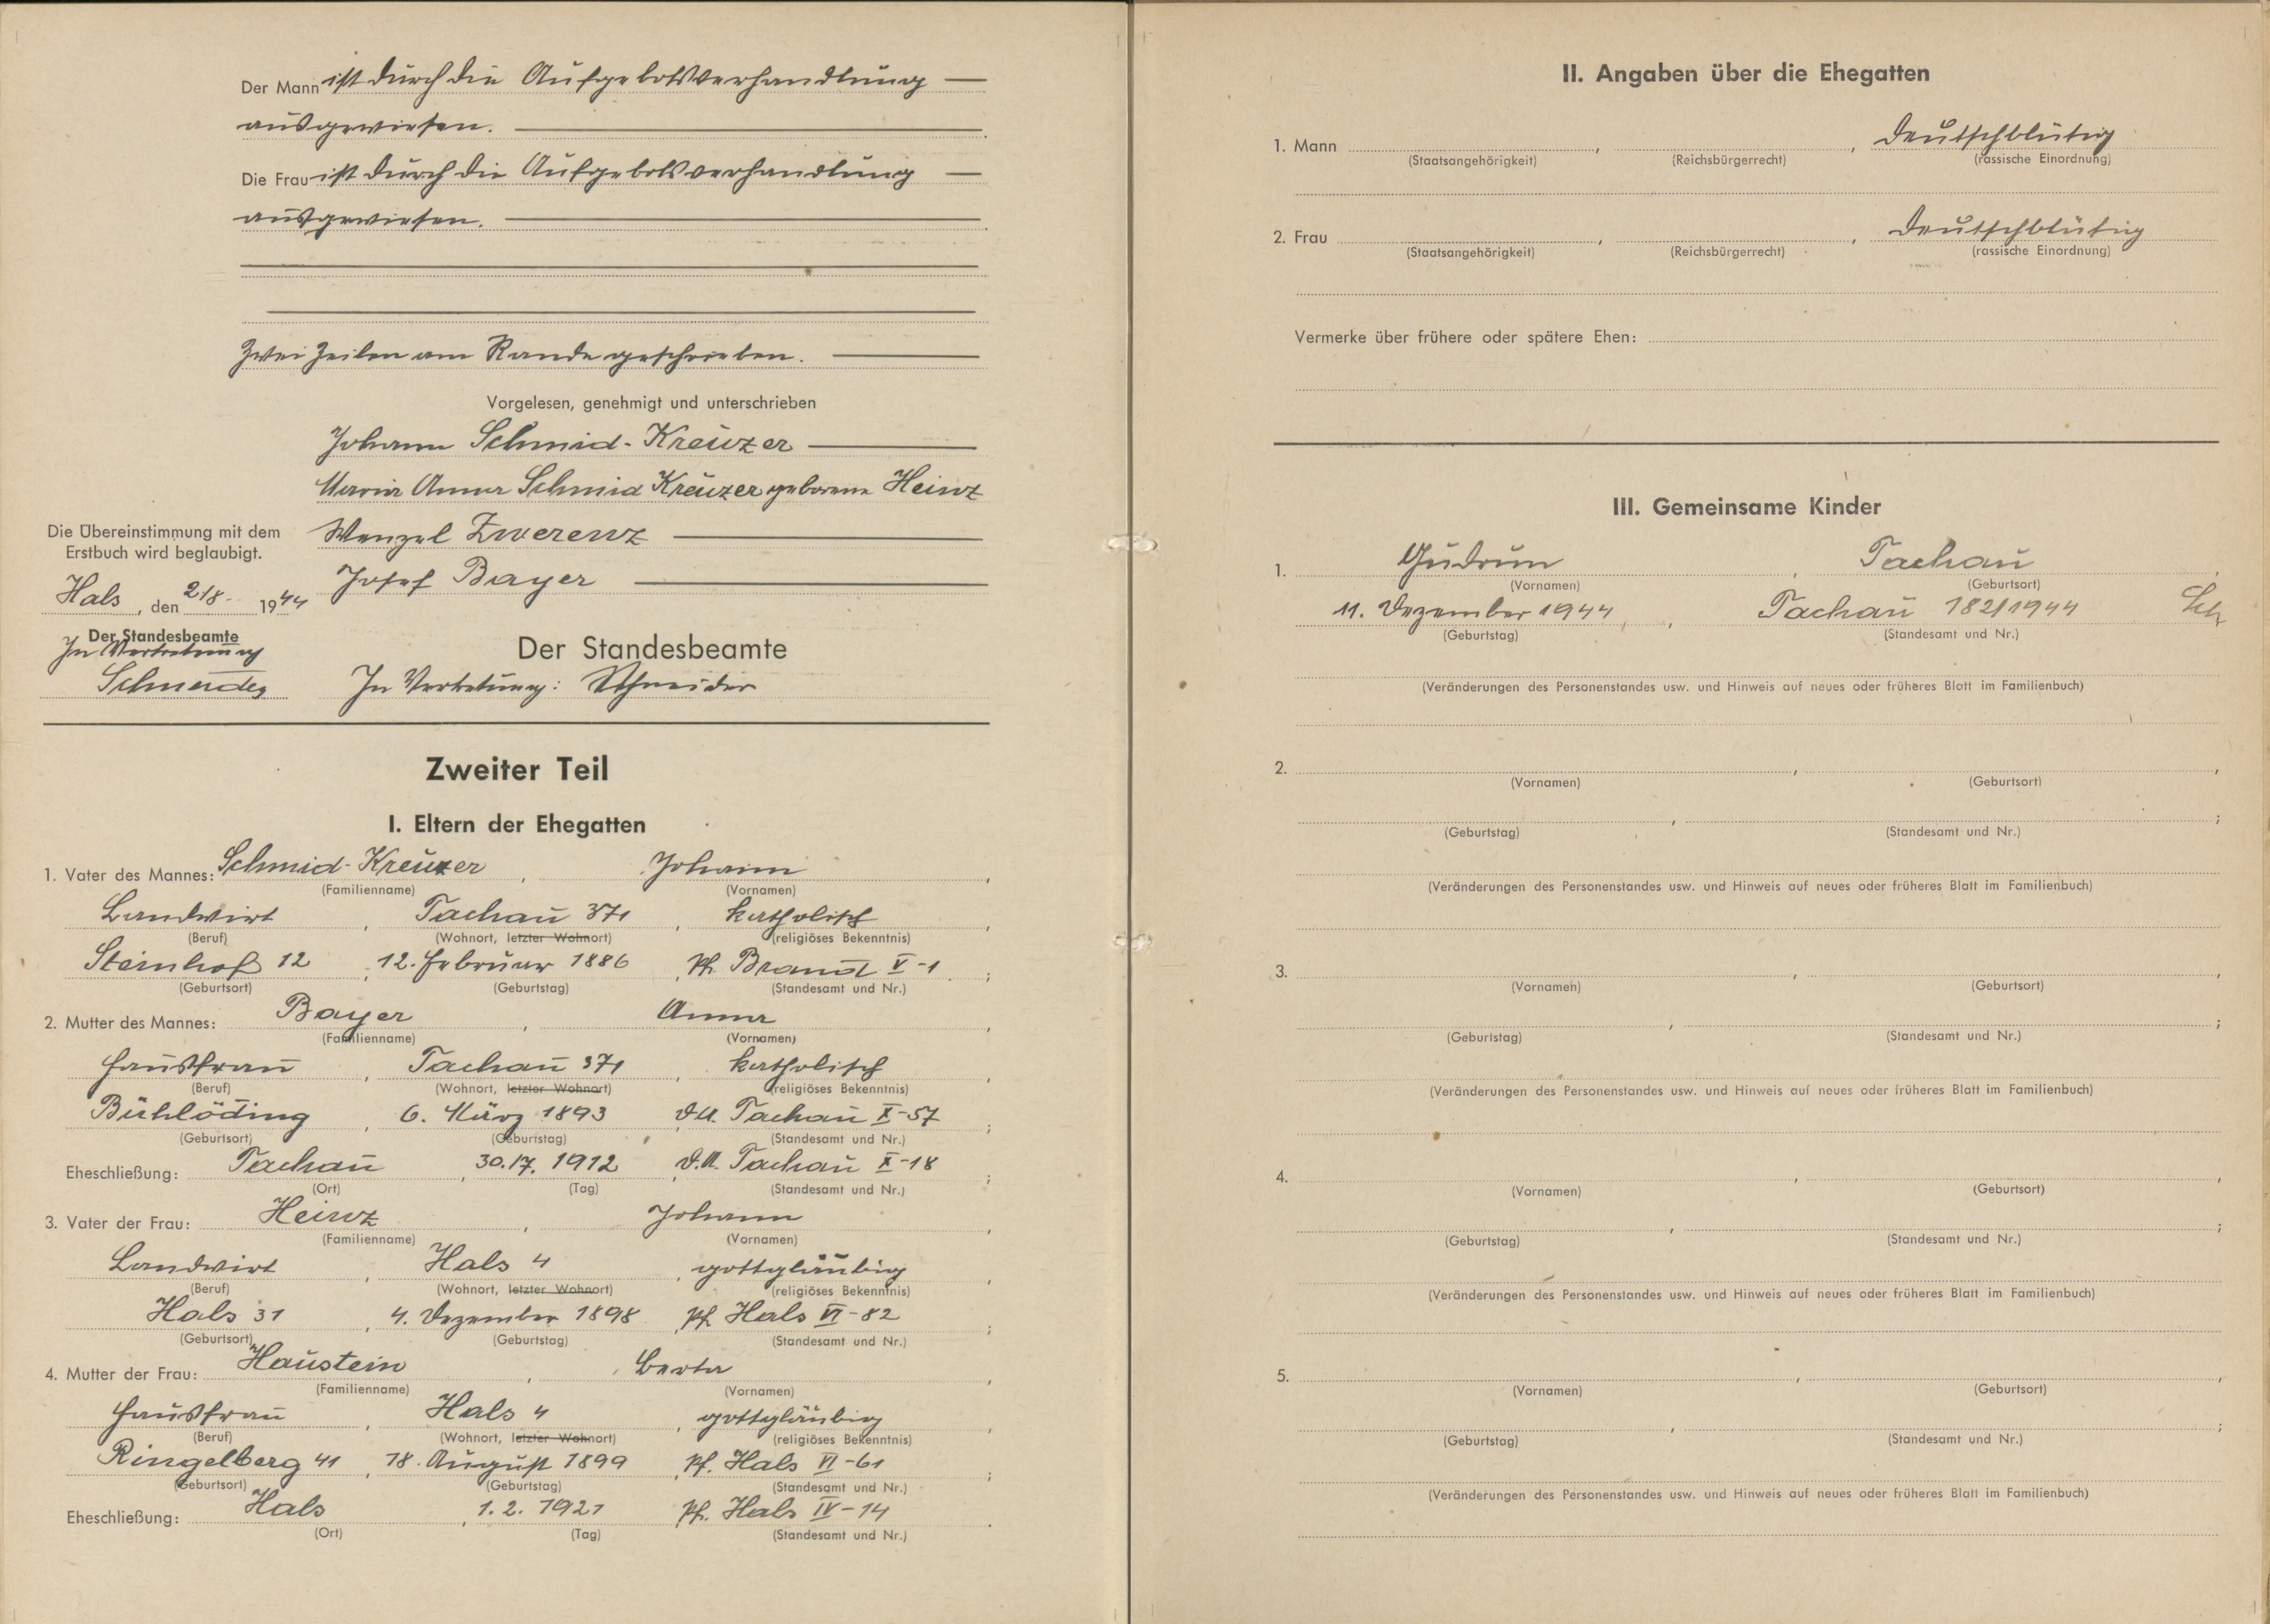 Der Mann ist durch die Aufgebotsverhandlung —
ausgewiesen.
Die Frau ist durch die Aufgebotsverhandlung —
ausgewiesen.
Zwei Zeilen am Rande geschrieben.
Vorgelesen, genehmigt und unterschrieben
Johann Schmid-Kreuzer
Maria Anna Schmid Kreuzer geborene Heinz
Wenzel Zwerenz
Josef Bayer
Die Übereinstimmung mit dem
Erstbuch wird beglaubigt.
Hals, den 2/8. 1944
Der Standesbeamte
In Vertretung
Schneider
Der Standesbeamte
In Vertretung: Schneider
Zweiter Teil
I. Eltern der Ehegatten
1. Vater des Mannes: Schmid-Kreuzer, Johann,
(Familienname) (Vornamen)
Landwirt, Tachau 371, katholisch,
(Beruf) (Wohnort, letzter Wohnort) (religiöses Bekenntnis)
Steinhof 12, 12. Februar 1886, Pf. Brand V-1;
(Geburtsort) (Geburtstag) (Standesamt und Nr.)
2. Mutter des Mannes: Bayer, Anna,
(Familienname) (Vornamen)
Hausfrau, Tachau 371, katholisch,
(Beruf) (Wohnort, letzter Wohnort) (religiöses Bekenntnis)
6. März 1893, D.A. Tachau X-57;
(Geburtsort) (Geburtstag) (Standesamt und Nr.)
Eheschließung: Tachau, 1912, D.A. Tachau X-18;
(Ort) (Tag) (Standesamt und Nr.)
3. Vater der Frau: Heinz, Johann,
(Familienname) (Vornamen)
Landwirt, Hals 4, gottgläubig,
(Beruf) (Wohnort, letzter Wohnort) (religiöses Bekenntnis)
Hals 31, 4. Dezember 1898, Pf. Hals VI-82;
(Geburtsort) (Geburtstag) (Standesamt und Nr.)
4. Mutter der Frau: Haustein, Berta,
(Familienname) (Vornamen)
Hausfrau, Hals 4, gottgläubig,
(Beruf) (Wohnort, letzter Wohnort) (religiöses Bekenntnis)
Ringelberg 41, 18. August 1899, Pf. Hals VI-61;
(Geburtsort) (Geburtstag) (Standesamt und Nr.)
Eheschließung: Hals, 1. 2. 1921 Pf. Hals IV-14.
(Ort) (Tag) (Standesamt und Nr.)
II. Angaben über die Ehegatten
1. Mann , , deutschblütig
(Staatsangehörigkeit) (Reichsbürgerrecht) (rassische Einordnung)
2. Frau , , deutschblütig
(Staatsangehörigkeit) (Reichsbürgerrecht) (rassische Einordnung)
Vermerke über frühere oder spätere Ehen:
III. Gemeinsame Kinder
1. Gudrun, Tachau,
(Vornamen) (Geburtsort)
11. Dezember 1944, Tachau 182/1944 Sch
(Geburtstag) (Standesamt und Nr.)
(Veränderungen des Personenstandes usw. und Hinweis auf neues oder früheres Blatt im Familienbuch)
2. , ,
(Vornamen) (Geburtsort)
, ;
(Geburtstag) (Standesamt und Nr.)
(Veränderungen des Personenstandes usw. und Hinweis auf neues oder früheres Blatt im Familienbuch)
3. , ,
(Vornamen) (Geburtsort)
, ;
(Geburtstag) (Standesamt und Nr.)
(Veränderungen des Personenstandes usw. und Hinweis auf neues oder früheres Blatt im Familienbuch)
4. , ,
(Vornamen) (Geburtsort)
, ;
(Geburtstag) (Standesamt und Nr.)
(Veränderungen des Personenstandes usw. und Hinweis auf neues oder früheres Blatt im Familienbuch)
5. , ,
(Vornamen) (Geburtsort)
, ;
(Geburtstag) (Standesamt und Nr.)
(Veränderungen des Personenstandes usw. und Hinweis auf neues oder früheres Blatt im Familienbuch)